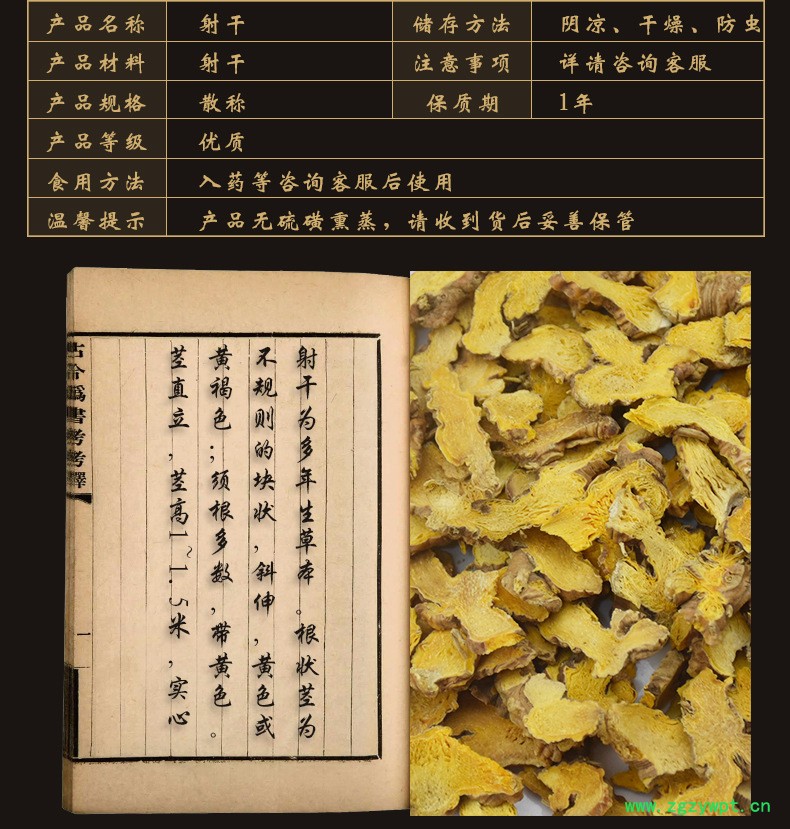 产品名称 射干 储存方法 阴凉、干燥、防虫
产品材料 射干 注意事项 详请咨询客服
产品规格 散称 保质期 1年
产品等级 优质
食用方法 入药等咨询客服后使用
温馨提示 产品无硫磺熏蒸，请收到货后妥善保管
射干为多年生草本。根状茎为
不规则的块状，斜伸，黄色或
黄褐色；须根多数，带黄色。
茎直立，茎高1~1.5米，实心
古今爲書考考釋
一
www.zgzywpt.cn